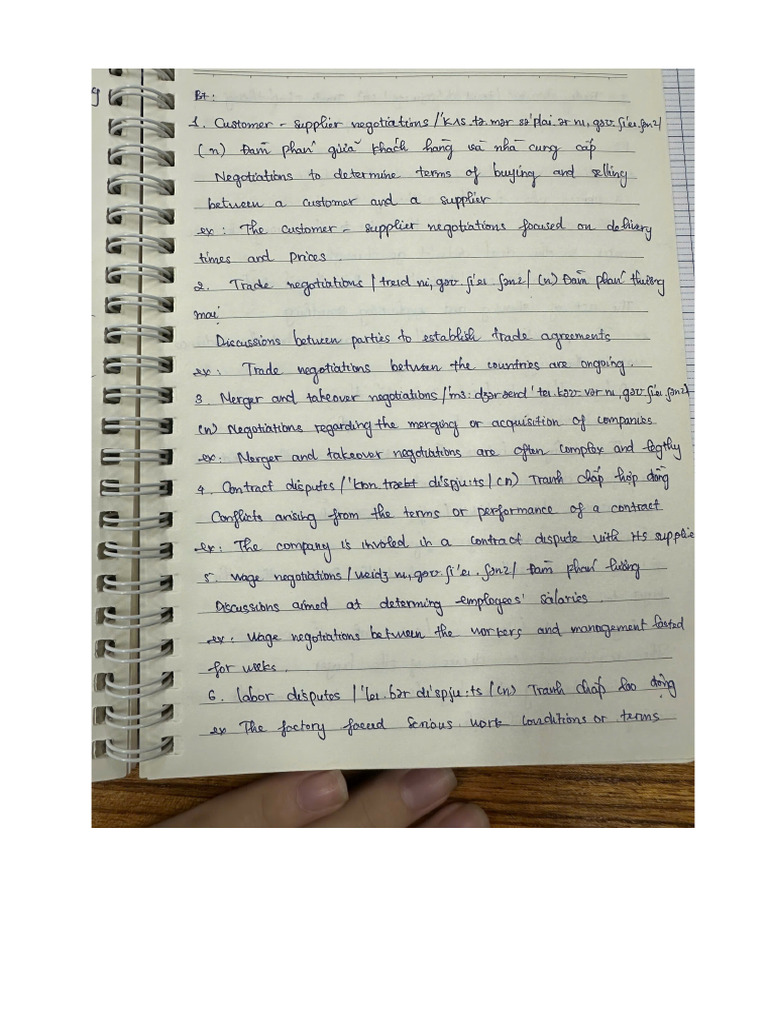 Bt:
1. Customer - supplier negotiations /'kʌs.tə.mər sə'plai.ər nɪ,gəʊ.ʃi'eɪ.ʃənz/
(n) Đàm phán giữa khách hàng và nhà cung cấp
Negotiations to determine terms of buying and selling
between a customer and a supplier
ex: The customer - supplier negotiations focused on delivery
times and prices.
2. Trade negotiations /treɪd nɪ,gəʊ.ʃi'eɪ.ʃənz/ (n) Đàm phán thương
mại
Discussions between parties to establish trade agreements
ex: Trade negotiations between the countries are ongoing.
3. Merger and takeover negotiations /'mɜ:dʒər ænd 'teɪ.kəʊ vər nɪ,gəʊ.ʃi'eɪ.ʃənz/
(n) Negotiations regarding the merging or acquisition of companies
ex: Merger and takeover negotiations are often complex and legthy
4. Contract disputes /'kɒn.trækt dɪ'spju:ts/ (n) Tranh chấp hợp đồng
Conflicts arising from the terms or performance of a contract
ex: The company is involed in a contract dispute with its supplie
5. Wage negotiations /weidʒ nɪ,gəʊ.ʃi'eɪ.ʃənz/ Đàm phán lương
Discussions aimed at determing employees' salaries.
ex: Wage negotiations between the workers and management lasted
for weeks.
6. labor disputes /'leɪ.bər dɪ'spju:ts/ (n) Tranh chấp lao động
ex The factory faced serious work conditions or terms